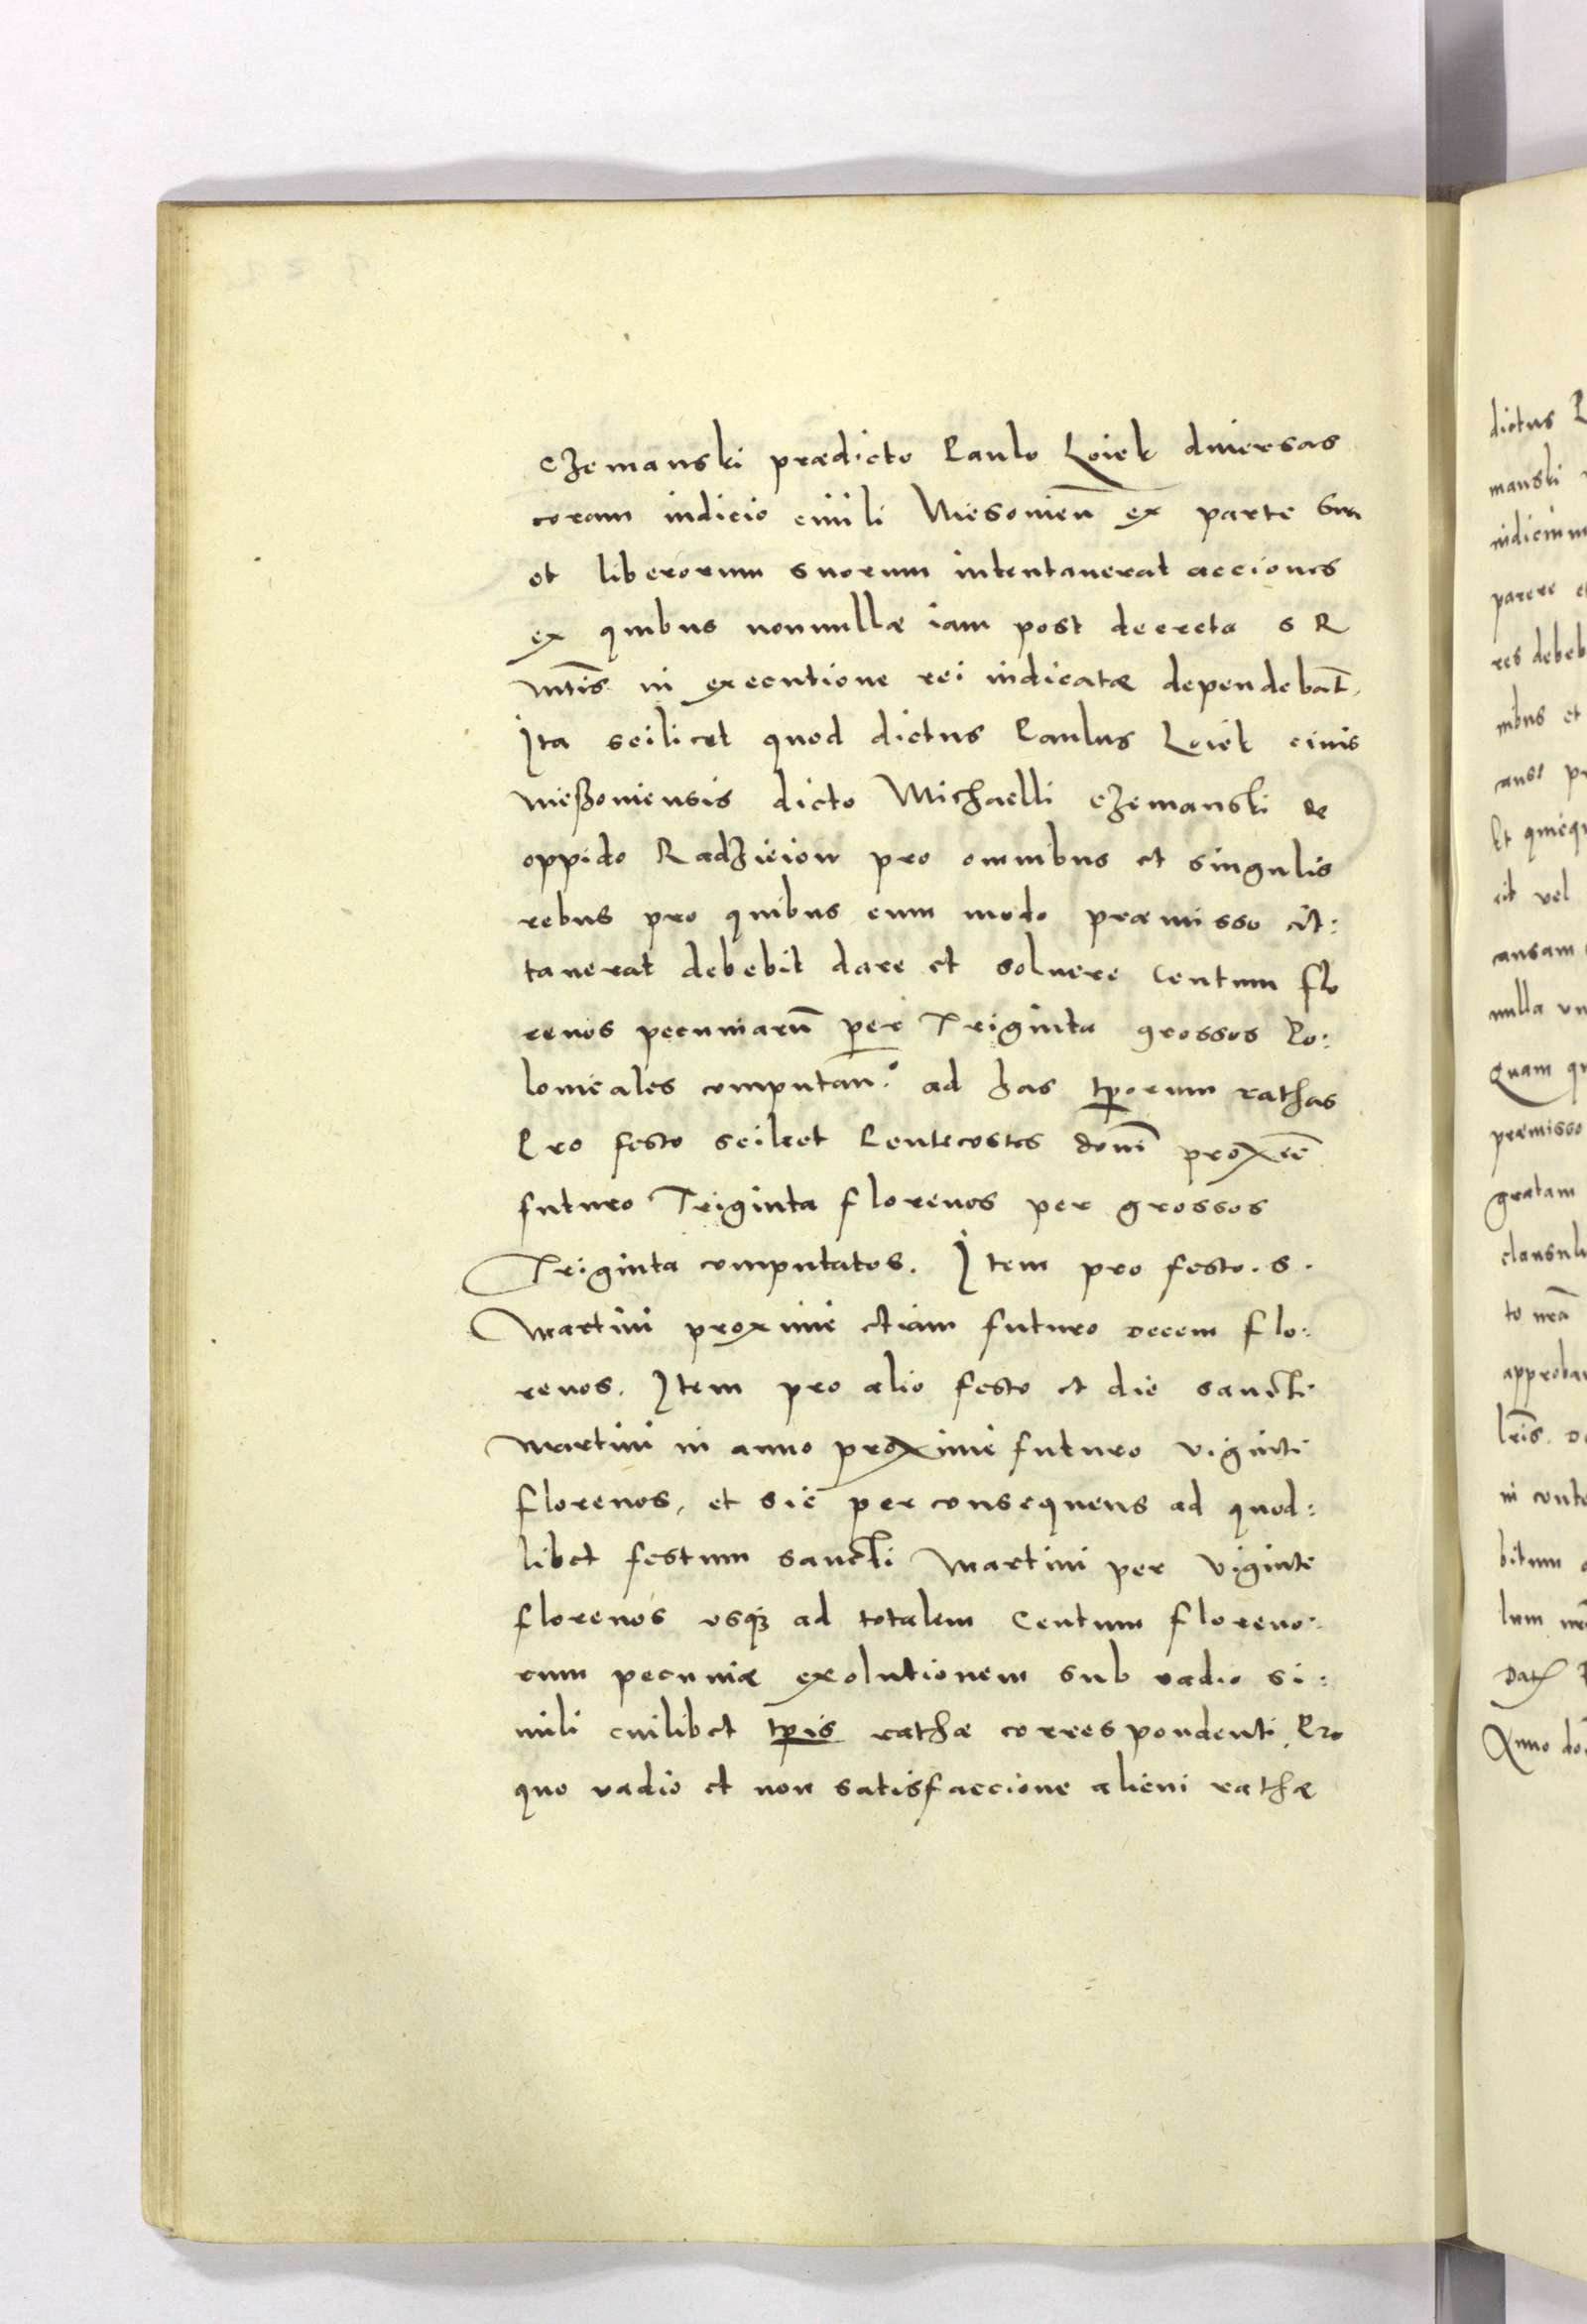 Czemanski prædicto Paulo Loiek diuersas
coram iudicio ciuili Mesonien̄ ex parte sua
et liberorum suorum intentauerat acciones
ex quibus nonnullæ iam post decreta S R
Mt̄is in executione rei iudicatæ dependebat̄,
Ita scilicet quod dictus Paulus Loiek ciuis
Meßoniensis dicto Michaelli Czemanski de
oppido Radzieiow pro omnibus et singulis
rebus pro quibus eum modo præmisso cit:
tauerat debebit dare et soluere Centum flo
renos pecuniarū per Triginta grossos Po:
lonicales computan̄. ad has tp̄orum rathas
Pro festo scilicet Pentecostes domī proxiē
futuro Triginta florenos per grossos
Triginta computatos. Item pro festo. S.
Martini proxime etiam futuro Decem flo:
renos. Item pro alio festo et die sancti
Martini in anno proxime futuro viginti
florenos, et sic per consequens ad quod:
libet festum sancti Martini per viginti
florenos vsq3 ad totalem Centum floreno:
rum pecuniæ exolutionem sub vadio si:
mili cuilibet tp̄is rathæ correspondenti, Pro
quo vadio et non satisfaccione alicui rathæ
dictus
manski
iudicium
parere et
res debeb
nibus et
Et quicqu
cit vel
causam
nulla vn
Quam qu
præmisso
gratam
clausul
to nrā
approba
lr̄is. D
in conte
bitum
lum
Dat
Anno do